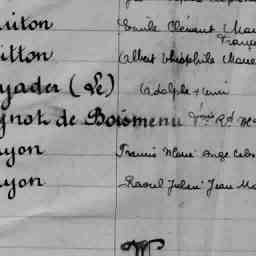 uiton Emile Clément Mau
França
itton Albert Théophile Marie
yader (Le) Adolphe Henri
ynot de Boismenu Louis
uyon Francis Marie Ange
uyon Raoul Julien Jean Ma